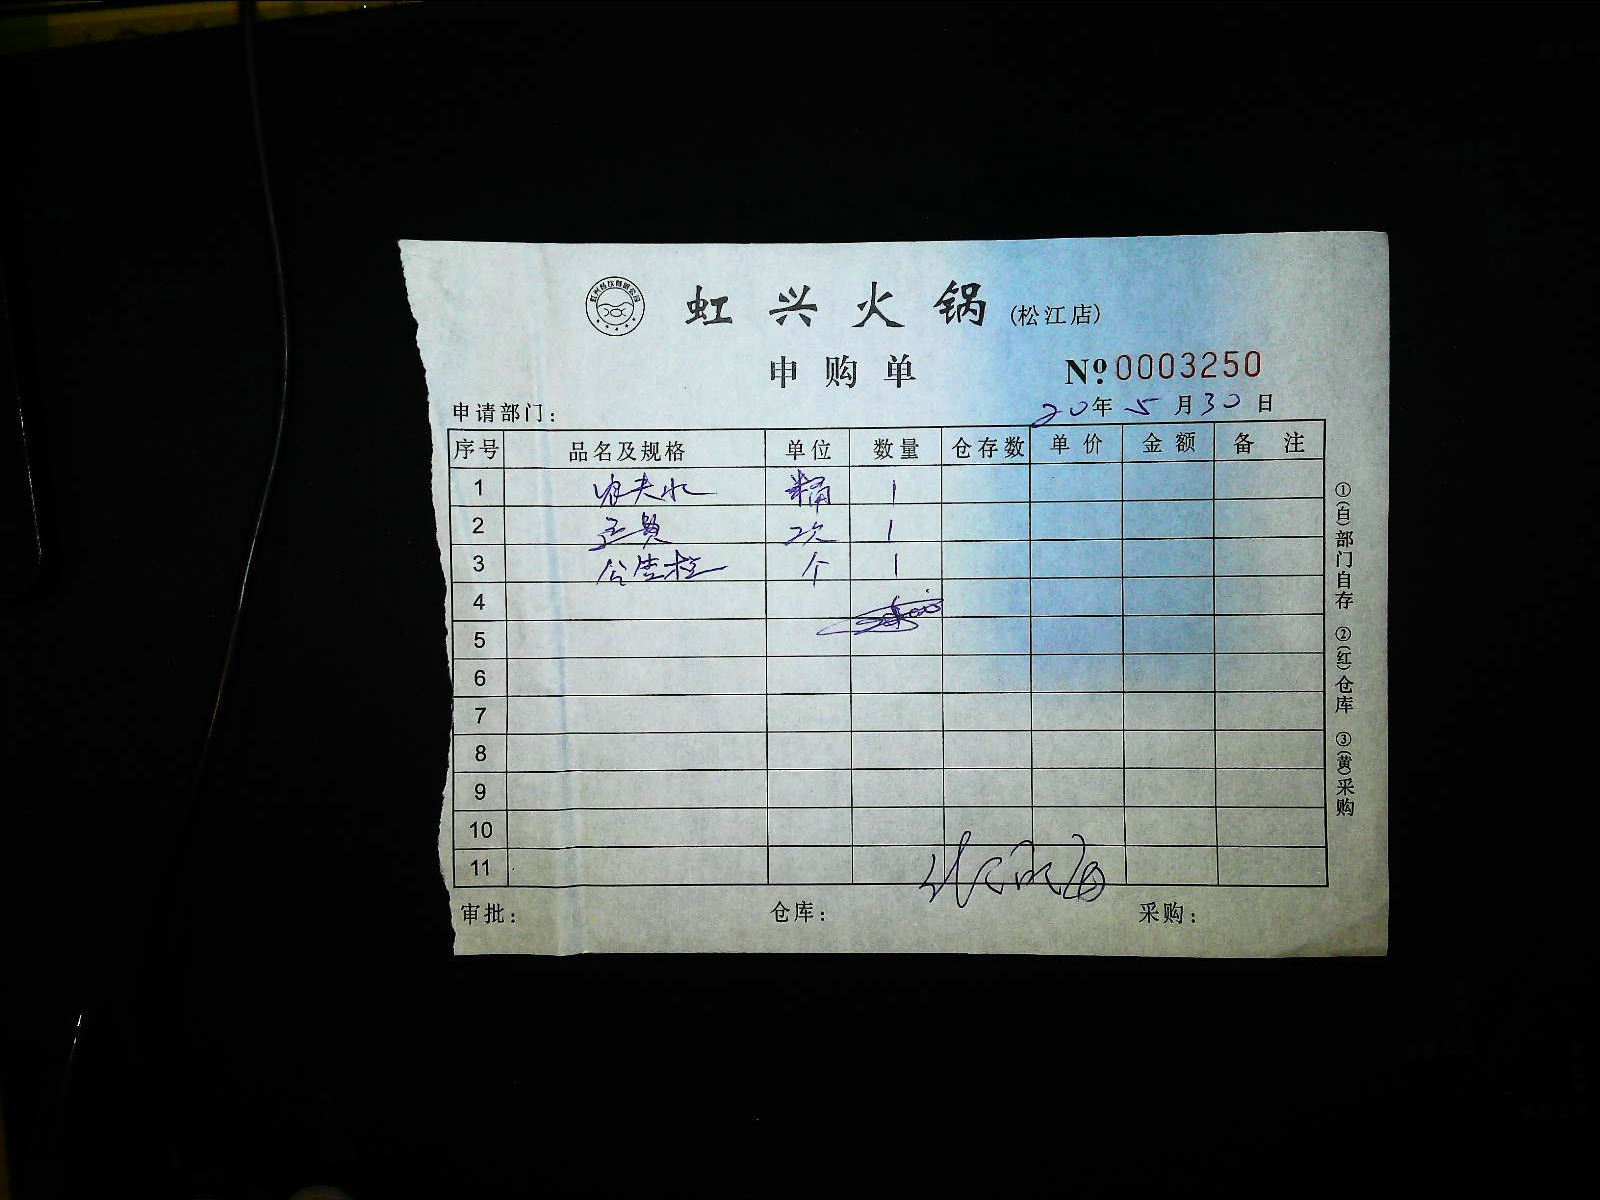 虹兴火锅(松江店)
申购单 Nº 0003250
申请部门： 20年 5月30日
序号 品名及规格 单位 数量 仓存数 单价 金额 备注
1 农夫水 桶 1
2 运费 次 1
3 个 1
4
5
6
7
8
9
10
11
审批： 仓库： 采购：
①(白)部门自存 ②(红)仓库 ③(黄)采购